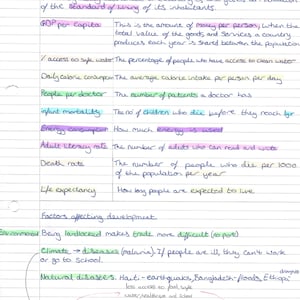 of the standard of living of its inhabitants.
GDP per Capita This is the amount of money per person, when the
total value of the goods and services a country
produces each year is shared between the population
% access to safe water The percentage of people who have access to clean water
Daily calorie consumption The average calorie intake per person per day
People per doctor The number of patients a doctor has
Infant mortality The no of children who die before they reach 1yr
Energy consumption How much energy is used
Adult literacy rate The number of adults who can read and write
Death rate The number of people who die per 1000
of the population per year
Life expectancy How long people are expected to live
Factors affecting development
Environmental Being landlocked makes trade more difficult (no port)
Climate → diseases (malaria). If people are ill, they can't work
or go to school.
Natural disasters. Haiti - earthquakes, Bangladesh - floods, Ethiopia
less access to food, safe